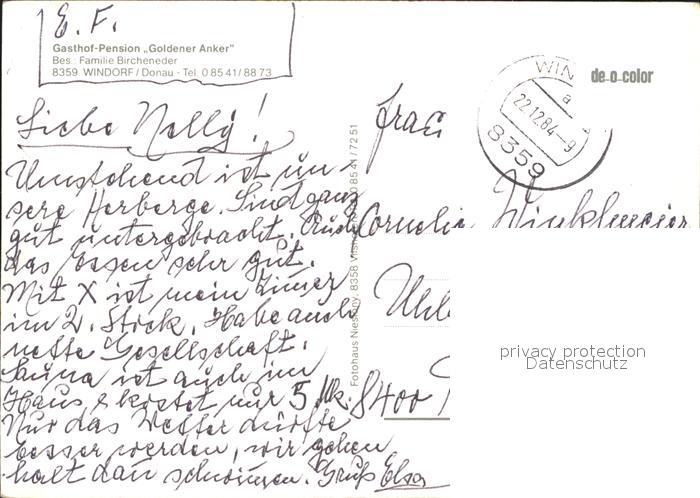 E. F.
Gasthof-Pension „Goldener Anker"
Bes.: Familie Bircheneder
8359 WINDORF / Donau - Tel. 0 85 41 / 88 73
Liebe Nelly!
Umstehend ist un-
sere Herberge. Sind ganz
gut untergebracht. Auch
das Essen sehr gut.
Mit X ist mein Zimmer
im 2. Stock. Habe auch
nette Gesellschaft.
Sauna ist auch im
Haus & kostet nur 5 Mk.
Nur das Wetter dürfte
besser werden, wir gehen
halt dan schwimmen. Gruß Elsa
Fotohaus 8358 0 85 41 / 72 51
de-o-color
WIN
a
22.12.84-9
8359
Frau
Cornelia Winklmeier
8400
privacy protection
Datenschutz